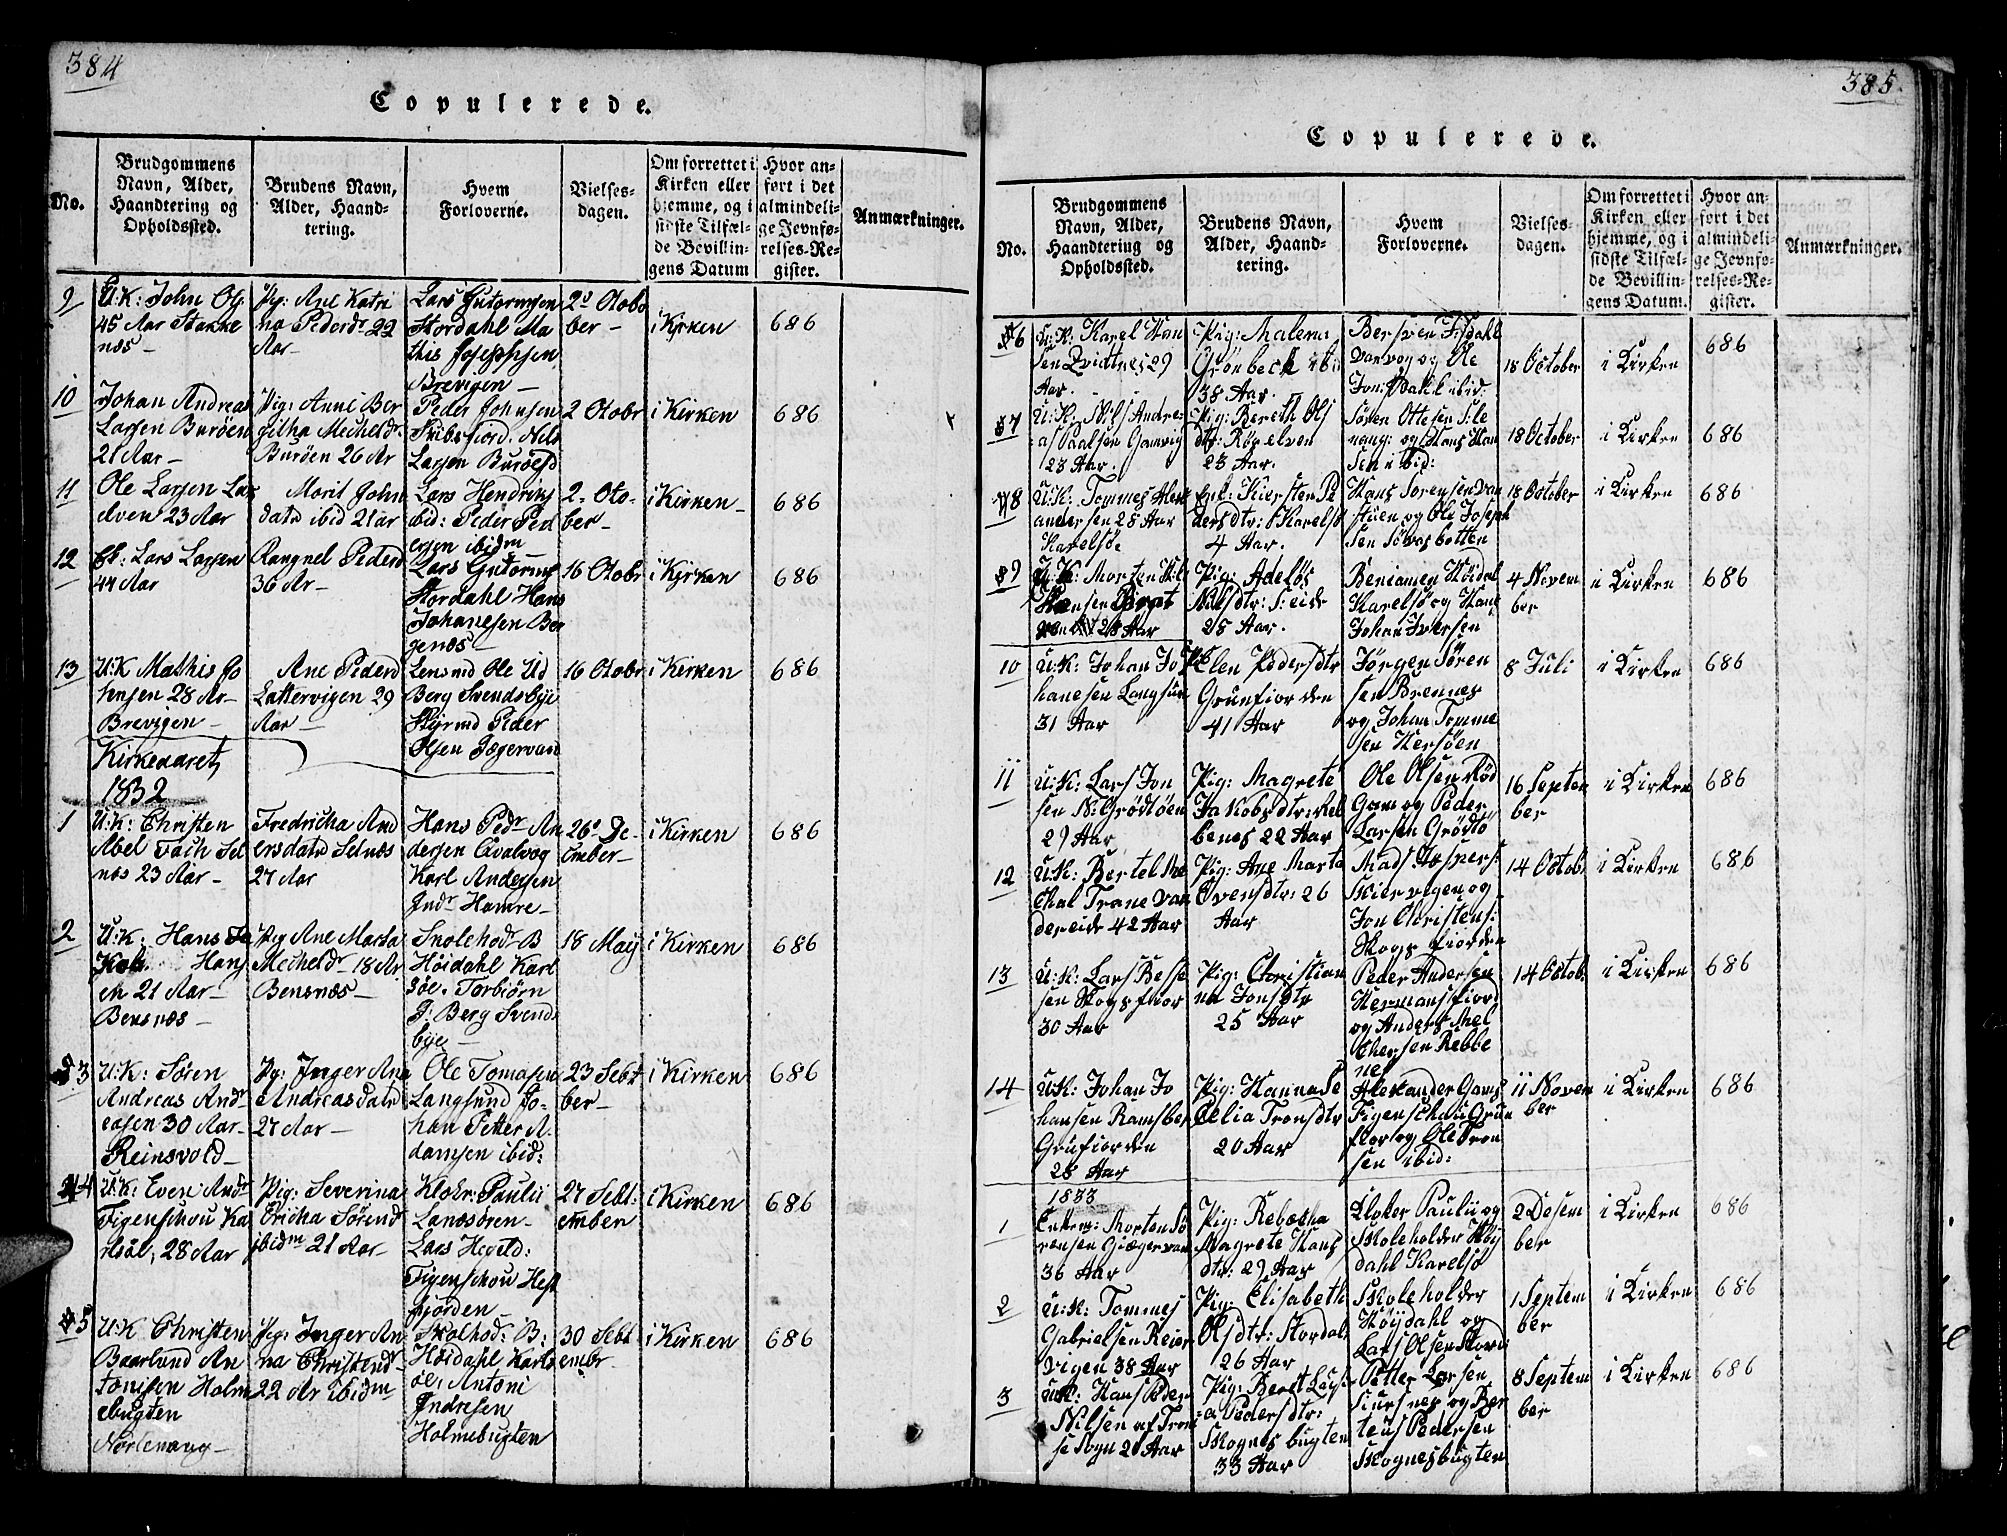 384
Copulerede.
No.
Brudgommens Navn, Alder, Haandtering og Opholdssted.
Brudens Navn, Alder, Haandtering.
Hvem Forloverne.
Vielsesdagen.
Om forrettet i Kirken eller hjemme, og i sidste Tilfælde Bevillingens Datum
Hvor anført i det almindelige Jevnførelses-Register.
Anmærkninger.
9
U:K: John Ol
45 Aar Stakke
næs –
Pig: Ane Katri
na Pedersdr 22
Aar –
Lars Gutormsen
Stordahl Ma
this Josephsen
Brevigen –
2d Otobr
ber –
i Kirken
686
10
Johan Andreas
Larsen Buröen
21 Aar –
Pig: Anne Ber
githa Mecheldr
Buröen 26 Ar
Peder Johnsen
Skibsfiord. Nils
Larsen Buröesd
2 Otobr
i Kirken
686
11
Ole Larsen Lax
elven 23 Aar
Marit John
datr ibid 21 ar
Lars Hendrins
ibid: Peder Ped
ersen ibidm
2. Oto-
ber –
i Kirken –
686
12
Lars Larsen
44 Aar
Rangnel Pederd
36 Ar –
Lars Gutorms
Stordahl Hans
Johanesen Ber
genæs –
16 Otobr
i Kirken
686
13
U:K Mathis Jo
hnsen 28 Ar –
Brevigen –
Ane Pederd
Lattervigen 29
Aar –
Lensmd Ole Ud
Berg Svendsbye
Styrmd Peder
Olsen Jægervan
16 Otobr
i Kirken
686
Kirkeaaret
1832
1
U:K: Christen
Abel Fach Sel
næs 23 Aar –
Fredricha And
ersdatr Selnæs
27 Aar
Hans Pedr An
dersen Qvalvog
Karl Andersen
Indr Hamre –
26d De-
cember –
i Kirken
686
2
U:K: Hans Ja
Kob Hans
en 21 Aar –
Bensnæs –
Pig Ane Marta
Mecheldr 18 Ar
Bensnæs –
Skolehodr B
Höidahl Karl
söe. Torbiörn
J: Berg Svend
bye –
18 May
i Kirken
686
3
U:K: Sören
Andreas Andr
easen 30 Aar –
Reinsvold –
Pg: Inger Ana
Andreasdatr
27 Aar –
Ole Tomasen
Langsund Jo-
han Petter A-
damsen ibid:
23 Sebt
ber –
i Kirken
686
4
U:K: Even Andr
Figenschou Ka
rlsöe, 28 Aar
Pig: Severina
Ericha Sörend
ibidm 21 Aar –
Klokr: Paulii
Lanesören –
Lars Heveld:
Figenschou Hest
fjorden –
27 Sebt:
ember
i Kirken
686
5
U:K Christen
Baarlund An
tonisen Holm
ebugten
Nordenang –
Pig: Inger An
na Christend
22 Ar ibidm
Skolhod: B:
Höidahl Karls
öe: Antoni
Andresen
Holmebugten
30 Sebt
ember –
i Kirken
686
385.
Copulerede.
No.
Brudgommens Navn, Alder, Haandtering og Opholdssted.
Brudens Navn, Alder, Haandtering.
Hvem Forloverne.
Vielsesdagen.
Om forrettet i Kirken eller hjemme, og i sidste Tilfælde Bevillingens Datum.
Hvor anført i det almindelige Jevnførelses-Register.
Anmærkninger.
6
U:K: Karel Han
sen Qvidtnes 29
Aar.
Pig: Malena
Grönbeck ibi
38 Aar.
Bersven Isdahl
Vanvog og Ole
Jon: Dahl ibid:
18 October
i Kirken
686
7
U:K: Nils Andre
as Paalsen Gamvig
23 Aar.
Pig: Bereth Ols
dtr: Röyelven
23 Aar.
Sören Ottesen Sle
nang: og Hans Han
sen i bid:
18 October
i Kirken
686
8
U:K: Tommes Alex
andersen 28 Aar
Karelsöe
Enk: Kiersten Pe
dersdtr: Karelsö
4 Aar.
Hans Sörensen Van
stuen og Ole Joseph
sen Sövasbotten
18 October
i Kirken
686
9
U:K: Morten Nil
28 Aar
Pig: Adelös
Nilsdtr: S:eide
28 Aar.
Beniamen Höidal
Karelsö og Hans
Johan Iversen
4 Novem
ber
i Kirken
686
10
U:K: Johan Jo
hanesen Langsun
31 Aar
Pi: Elen Pedersdtr
Grunfiorden
41 Aar
Jörgen Sören
sen Brennes
og Johan Tomme
sen Hersöen
8 Juli
i Kirken
686
11
U:K: Lars Jon
sen N: Grödtöen
29 Aar
Pig: Magrete
Jakobsdtr: Hel
benes 22 Aar
Ole Olsen Röd
Gam og Peder
Larsen Grödtö
16 Septem
ber
i Kirken
686
12
U:K: Bertel Me
chal Trane Van
dereide 42 Aar
Pig: Ane Marta
Evensdtr: 26
Aar
Mads Jespers:
Skiervigen og
Jon Christens:
Skogsfiorden
14 Octob
i Kirken
686
13
U:K: Lars Besse
sen Skogsfior
30 Aar
Pig: Christian
na Jonsdtr
25 Aar
Peder Andersen
Hermansfiord
og Anders Mel
chersen Rebbe
nes
14 Octob
i Kirken
686
14
U:K: Johan Jo
hansen Ramsber
Grufiorden
28 Aar
Pig: Hanna Se
celia Tronsdtr
20 Aar
Alexander Gams
Figenschau Grun
fior og Ole Tron
sen ibid:
11 Novem
ber
i Kirken
686
1833
1
Enkem: Morten Sö
rensen Giægervan
36 Aar
Pig: Rebecha
Magrete Hans
dtr: 29 Aar
Kloker Paulii og
Skoleholder Höj
dahl Karelsö
2 Desem
ber
i Kirken
686
2
U:K: Tommes
Gabrielsen Reier
vigen 38 Aar
Pig: Elisabeth
Olsdtr: Stordal
26 Aar
Skoleholder
Höydahl og
Lars Olsen Stord
1 Septem
ber
i Kirken
686
3
U:K: Hans Peder
Nilsen af Trom
sö Sogn 20 Aar
Pig: Beret Lovis
a Pedersdtr:
Skognesbugten
33 Aar
Petter Larsen
Skursnes og Ber
teus Pedersen
Skognesbugten
8 Septem
ber
i Kirken
686